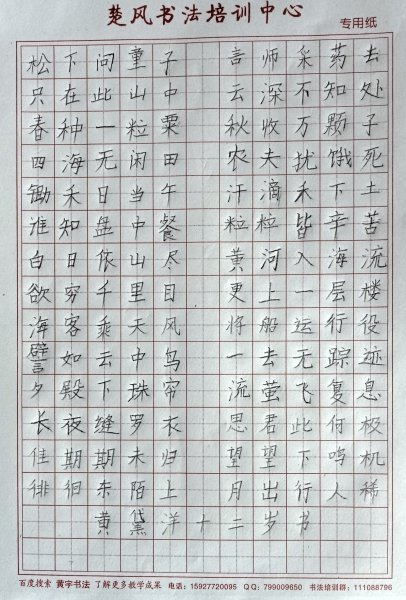 楚风书法培训中心
专用纸
松下问童子 言师采药去
只在此山中 云深不知处
春种一粒粟 秋收万颗子
四海无闲田 农夫扰饿死
锄禾日当午 汗滴禾下土
谁知盘中餐 粒粒皆辛苦
白日依山尽 黄河入海流
欲穷千里目 更上一层楼
海客乘天风 将船运行役
譬如云中鸟 一去无踪迹
夕殿下珠帘 流萤飞复息
长夜缝罗衣 思君此何极
佳期期未归 望望下鸣机
徘徊东陌上 月出行人稀
黄黛洋十二岁书
百度搜索 黄字书法 了解更多教学成果 电话：15927720095 QQ：799009650 书法培训群：111088796